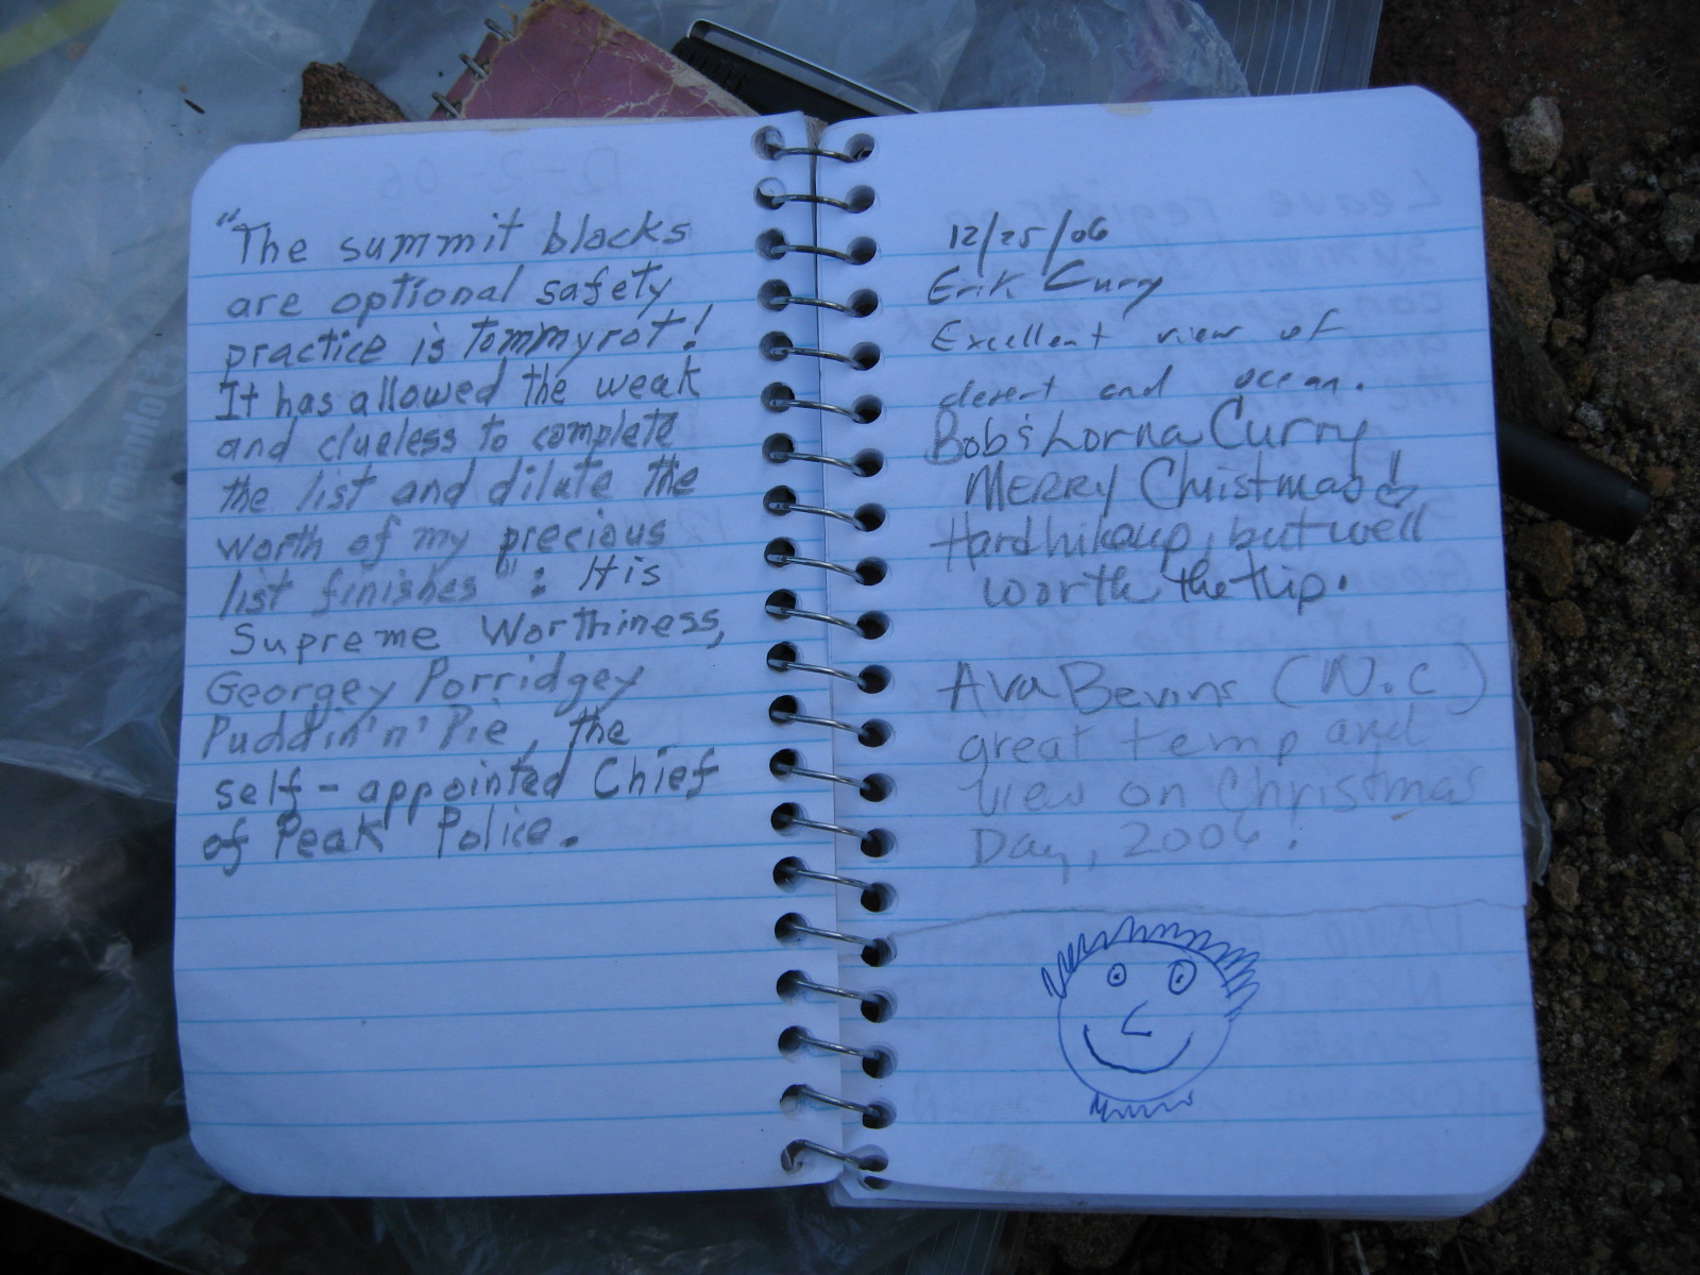 "The summit blocks
are optional safety
practice is Tommyrot!
It has allowed the weak
and clueless to complete
the list and dilute the
worth of my precious
list finishes": His
Supreme Worthiness,
Georgey Porridgey
Puddin'n'Pie, the
self-appointed Chief
of Peak Police.
12/25/06
Erik Curry
Excellent view of
desert and ocean.
Bob & Lorna Curry
MERRY Christmas!
Hard hike up, but well
worth the trip.
Ava Bevins (N.C)
great temp and
view on Christmas
Day, 2006.